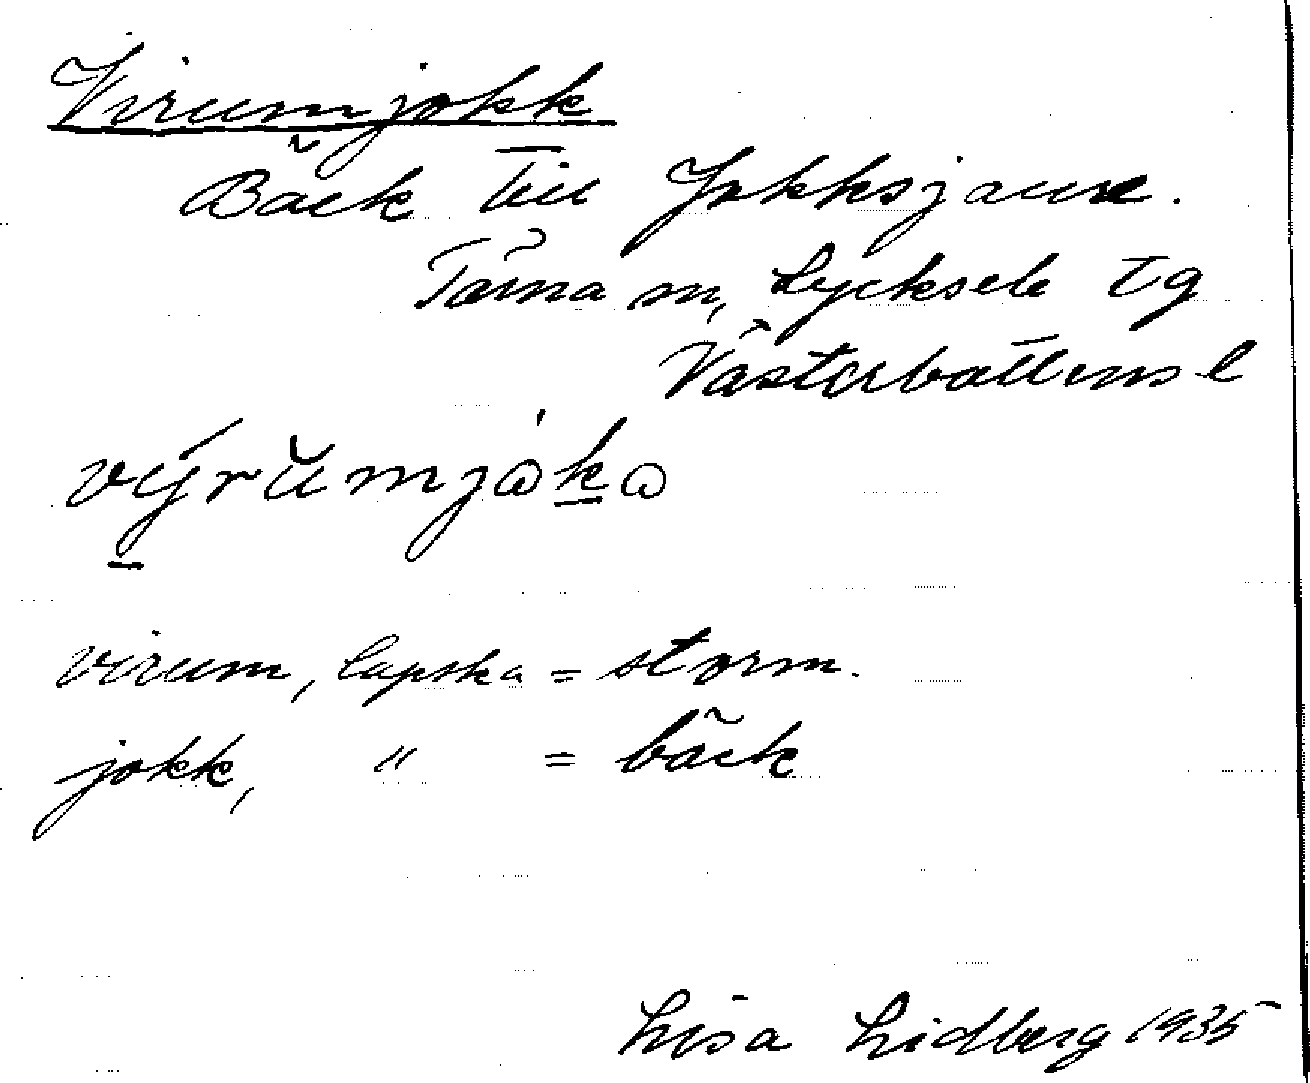 Virumjokk
Bäck till Jokksjaure.
Tärna sn, Lycksele tg
Västerbottens l
výrŭmjòkω
virum, lapska = storm.
jokk, " = bäck
Lisa Lidberg 1935